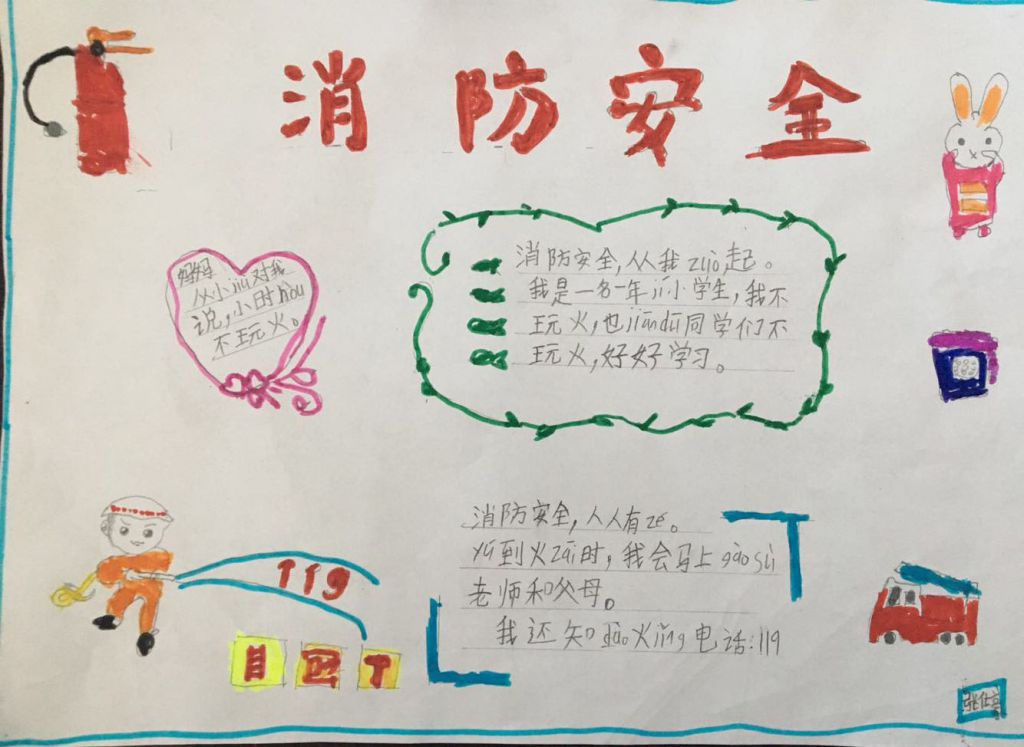 消防安全
妈妈
从小jiù对我
说,小时hòu
不玩火。
消防安全,从我zuò起。
我是一名一年jí小学生,我不
玩火,也jiāndū同学们不
玩火,好好学习。
119
消防安全,人人有zé。
yù到火zāi时,我会马上gàosù
老师和父母。
我还知dào火jǐng电话:119